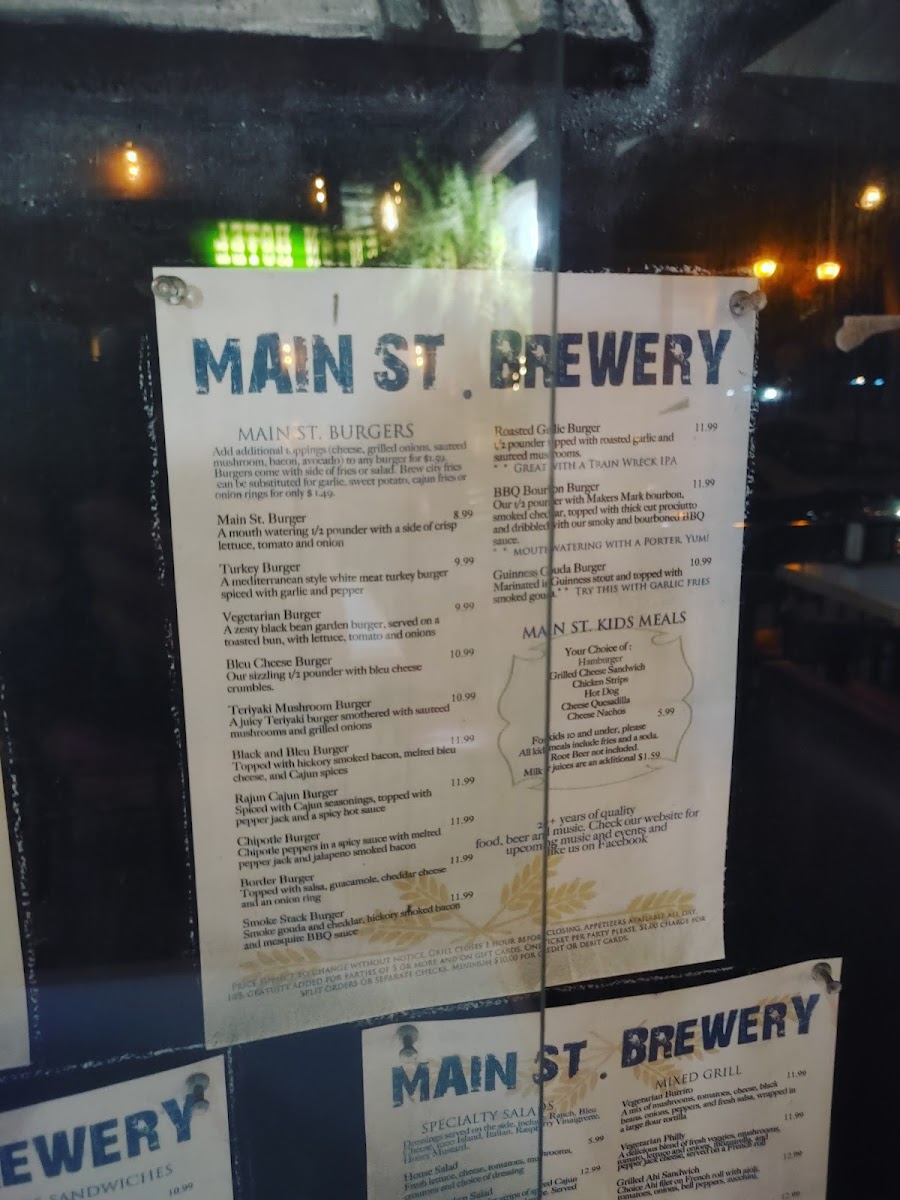 MAIN ST. BREWERY
MAIN ST. BURGERS
Add additional toppings (cheese, grilled onions, sauteed
mushroom, bacon, avocado) to any burger for $1.59.
Burgers come with side of fries or salad. Brew city fries
can be substituted for garlic, sweet potato, cajun fries or
onion rings for only $1.49.
Main St. Burger 8.99
A mouth watering 1/2 pounder with a side of crisp
lettuce, tomato and onion
Turkey Burger 9.99
A mediterranean style white meat turkey burger
spiced with garlic and pepper
Vegetarian Burger 9.99
A zesty black bean garden burger, served on a
toasted bun, with lettuce, tomato and onions
Bleu Cheese Burger 10.99
Our sizzling 1/2 pounder with bleu cheese
crumbles.
Teriyaki Mushroom Burger 10.99
A juicy Teriyaki burger smothered with sauteed
mushrooms and grilled onions
Black and Bleu Burger 11.99
Topped with hickory smoked bacon, melted bleu
cheese, and Cajun spices
Rajun Cajun Burger 11.99
Spiced with Cajun seasonings, topped with
pepper jack and a spicy hot sauce
Chipotle Burger 11.99
Chipotle peppers in a spicy sauce with melted
pepper jack and jalapeno smoked bacon
Border Burger 11.99
Topped with salsa, guacamole, cheddar cheese
and an onion ring
Smoke Stack Burger 11.99
Smoke gouda and cheddar, hickory smoked bacon
and mesquite BBQ sauce
Roasted Garlic Burger 11.99
1/2 pounder topped with roasted garlic and
sauteed mushrooms.
* * GREAT WITH A TRAIN WRECK IPA
BBQ Bourbon Burger 11.99
Our 1/2 pounder with Makers Mark bourbon,
smoked cheddar, topped with thick cut prociutto
and dribbled with our smoky and bourboned BBQ
sauce.
* * MOUTHWATERING WITH A PORTER, YUM!
Guinness Gouda Burger 10.99
Marinated in Guinness stout and topped with
smoked gouda. * * TRY THIS WITH GARLIC FRIES
MAIN ST. KIDS MEALS
Your Choice of :
Hamburger
Grilled Cheese Sandwich
Chicken Strips
Hot Dog
Cheese Quesadilla
Cheese Nachos 5.99
For kids 10 and under, please
All kid meals include fries and a soda.
Root Beer not included.
Milk juices are an additional $1.59.
years of quality
food, beer and music. Check our website for
upcoming music and events and
like us on Facebook
PRICE SUBJECT TO CHANGE WITHOUT NOTICE. GRILL CLOSES 1 HOUR BEFORE CLOSING. APPETIZERS AVAILABLE ALL DAY.
18% GRATUITY ADDED FOR PARTIES OF 5 OR MORE AND ON GIFT CARDS. ONE TICKET PER PARTY PLEASE. $1.00 CHARGE FOR
SPLIT ORDERS OR SEPARATE CHECKS. MINIMUM $10.00 FOR CREDIT OR DEBIT CARDS.
EWERY
SANDWICHES
10.99
MAIN ST. BREWERY
SPECIALTY SALADS
Dressings served on the side, Ranch, Bleu
Cheese, 1000 Island, Italian, Raspberry Vinaigrette,
Honey Mustard.
5.99
House Salad
Fresh lettuce, cheese, tomatoes,
croutons and choice of dressing
12.99
Salad
MIXED GRILL
Vegetarian Burrito 11.99
A mix of mushrooms, tomatoes, cheese, black
beans, onions, peppers, and fresh salsa, wrapped in
a large flour tortilla
Vegetarian Philly 11.99
A delicious blend of fresh veggies, mushrooms,
tomato, lettuce and onions, mozzarella, and
pepper jack cheese, served on a French roll
Grilled Ahi Sandwich 12.99
Choice Ahi filet on French roll with aioli,
tomatoes, onions, bell peppers,